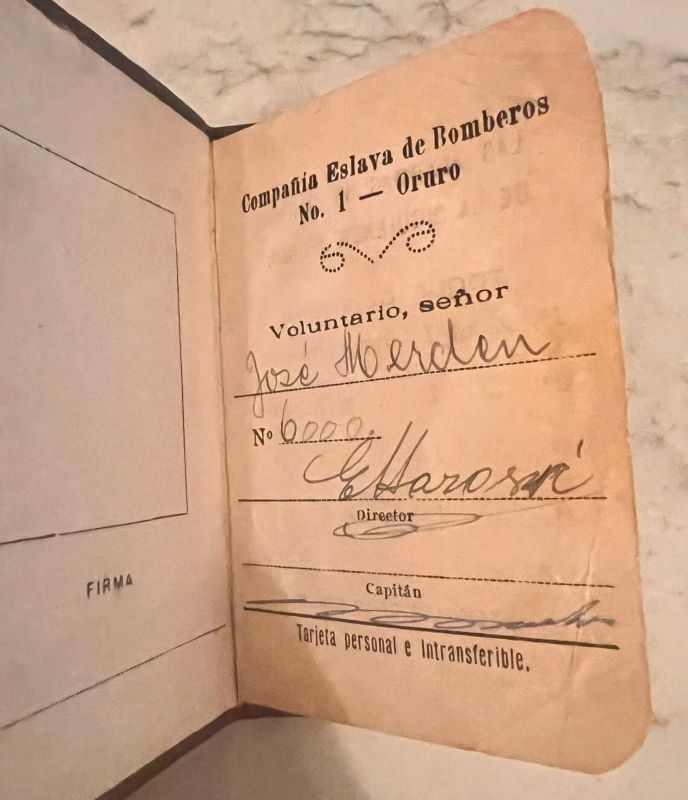 Compañía Eslava de Bomberos
No. 1 — Oruro
Voluntario, señor
José Merden
Nº 6000.
Director
Capitán
Tarjeta personal e Intransferible.
FIRMA